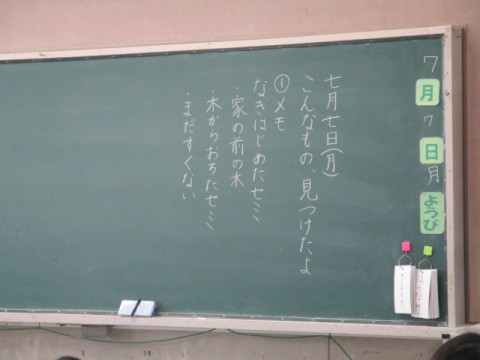 7月7日月ようび
七月七日(月)
こんなもの、見つけたよ
①メモ
なきはじめたセミ
・家の前の木
・木からおちたセミ
・まだすくない